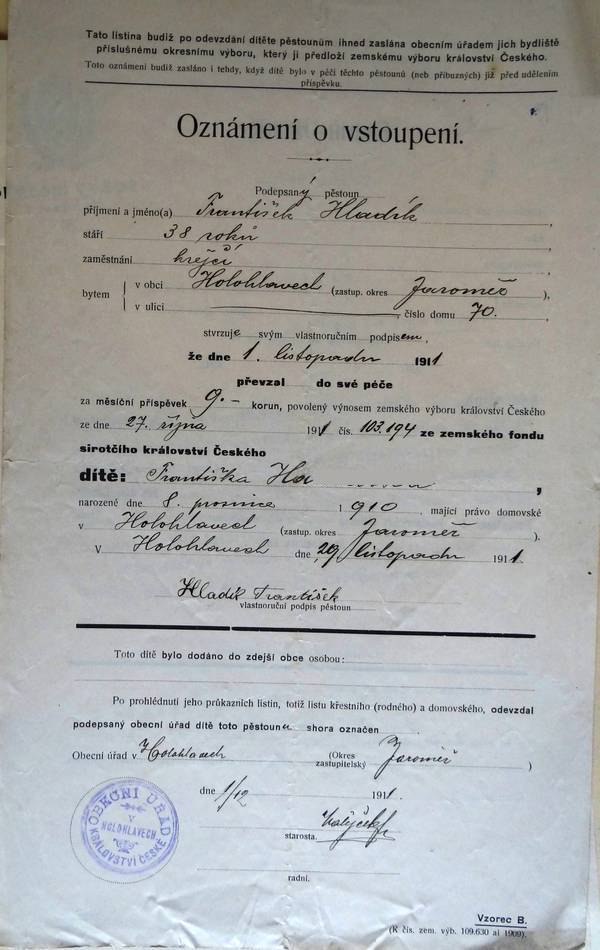 Tato listina budiž po odevzdání dítěte pěstounům ihned zaslána obecním úřadem jich bydliště
příslušnému okresnímu výboru, který ji předloží zemskému výboru království Českého.
Toto oznámení budiž zasláno i tehdy, když dítě bylo v péči těchto pěstounů (neb příbuzných) již před udělením
příspěvku.
Oznámení o vstoupení.
Podepsaný pěstoun
příjmení a jméno(a) František Hladík,
stáří 38 roků,
zaměstnání krejčí,
bytem v obci Holohlavech (zastup. okres Jaroměř),
v ulici číslo domu 70.
stvrzuje svým vlastnoručním podpisem,
že dne 1. listopadu 1911
převzal do své péče
za měsíční příspěvek 9.– korun, povolený výnosem zemského výboru království Českého
ze dne 27. října 1911 čís. 103.194 ze zemského fondu
sirotčího království Českého
dítě: Františka Ha ,
narozené dne 8. prosince 1910, mající právo domovské
v Holohlavech (zastup. okres Jaroměř).
V Holohlavech dne 29 listopadu 1911.
Hladík František
vlastnoruční podpis pěstoun
Toto dítě bylo dodáno do zdejší obce osobou:
Po prohlédnutí jeho průkazních listin, totiž listu křestního (rodného) a domovského, odevzdal
podepsaný obecní úřad dítě toto pěstounu shora označen
Obecní úřad v Holohlavech (Okres zastupitelský Jaroměř)
dne 1/12 1911.
OBECNÍ ÚŘAD
V
HOLOHLAVECH
KRÁLOVSTVÍ ČESKÉ
starosta.
radní.
Vzorec B.
(K čís. zem. výb. 109.630 ai 1909).